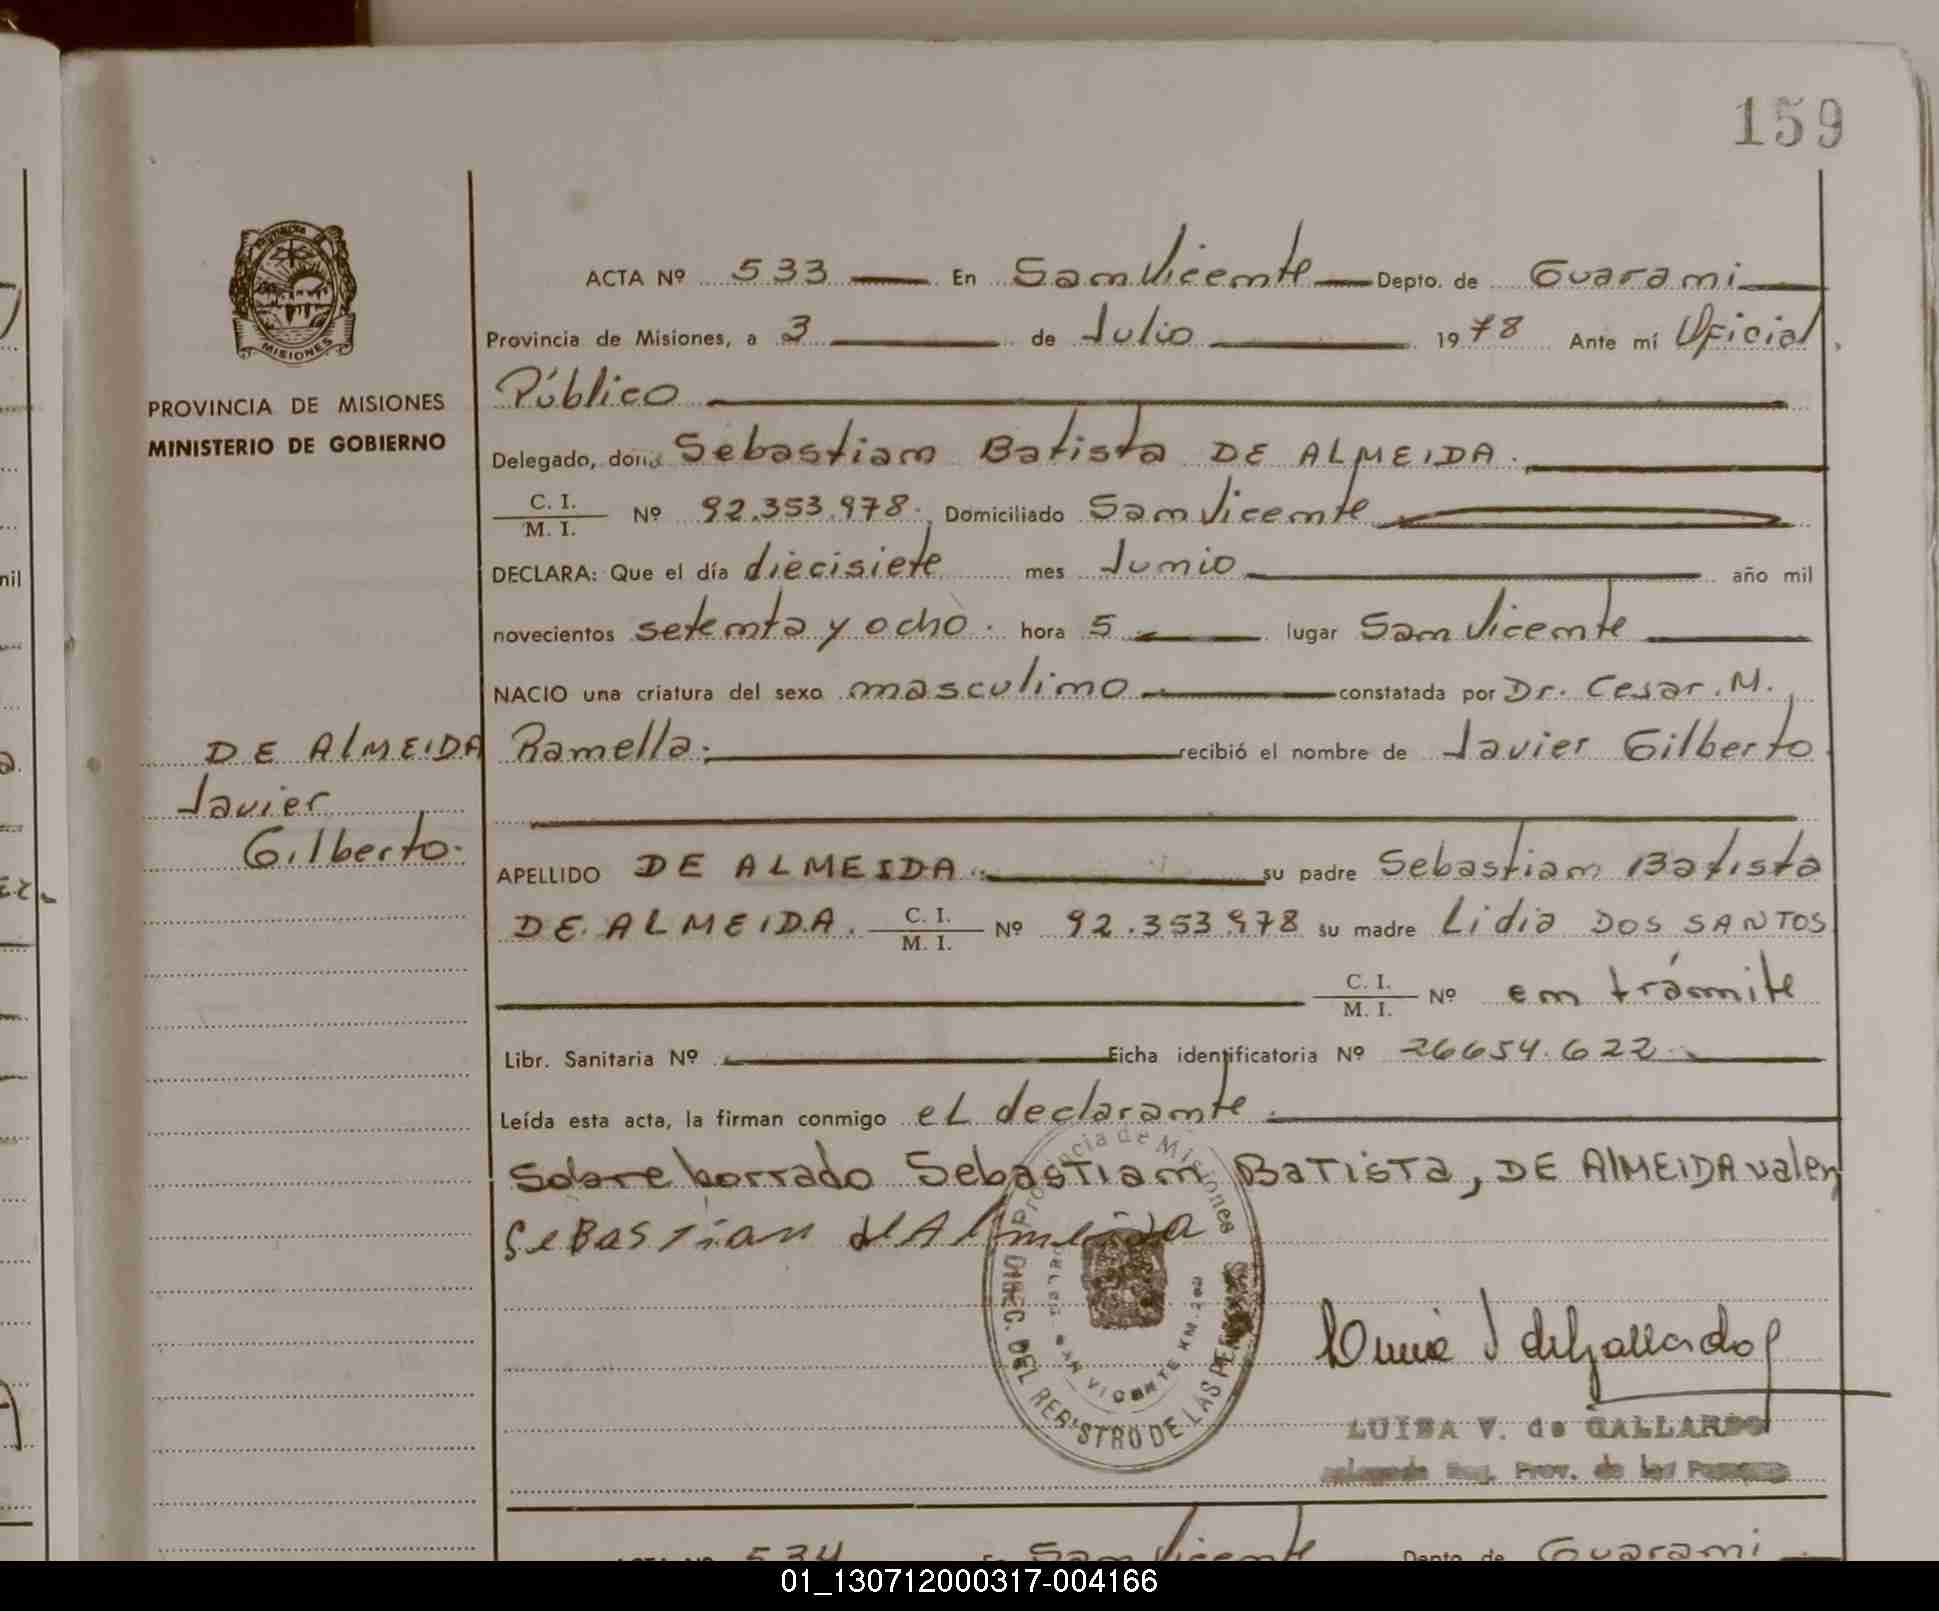 159
ACTA Nº 533 En San Vicente Depto. de Guarani
Provincia de Misiones, a 3 de Julio 1978 Ante mí Oficial
Público
Delegado, don Sebastian Batista DE ALMEIDA.
C. I.
M. I. Nº 92.353.978. Domiciliado San Vicente
DECLARA: Que el día diecisiete mes Junio año mil
novecientos setenta y ocho. hora 5 lugar San Vicente
NACIO una criatura del sexo masculino constatada por Dr. Cesar. M.
Ramella. recibió el nombre de Javier Gilberto
APELLIDO DE ALMEIDA. su padre Sebastian Batista
DE ALMEIDA. C. I. M. I. Nº 92.353.978 su madre Lidia DOS SANTOS
C. I. M. I. Nº en trámite
Libr. Sanitaria Nº Ficha identificatoria Nº 26654.622
Leída esta acta, la firman conmigo el declarante.
Sobre borrado Sebastian Batista, DE ALMEIDA valen
SeBastian de Almeida
PROVINCIA DE MISIONES
MINISTERIO DE GOBIERNO
MISIONES
DE ALMEIDA
Javier
Gilberto.
Provincia de Misiones
DIREC. DEL REGISTRO DE LAS
SAN VICENTE KM.
LUISA V. de GALLARDO
ACTA Nº 534 En San Vicente Depto de Guarani
01_130712000317-004166